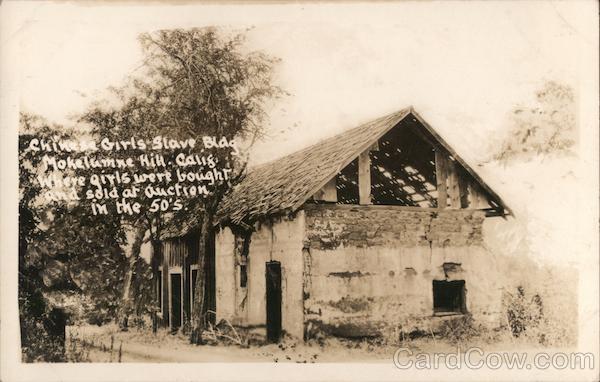 Chinese Girls Slave Bldg
Mokelumne Hill. Calif.
Where girls were bought
and sold at auction
in the 50's.
CardCow.com